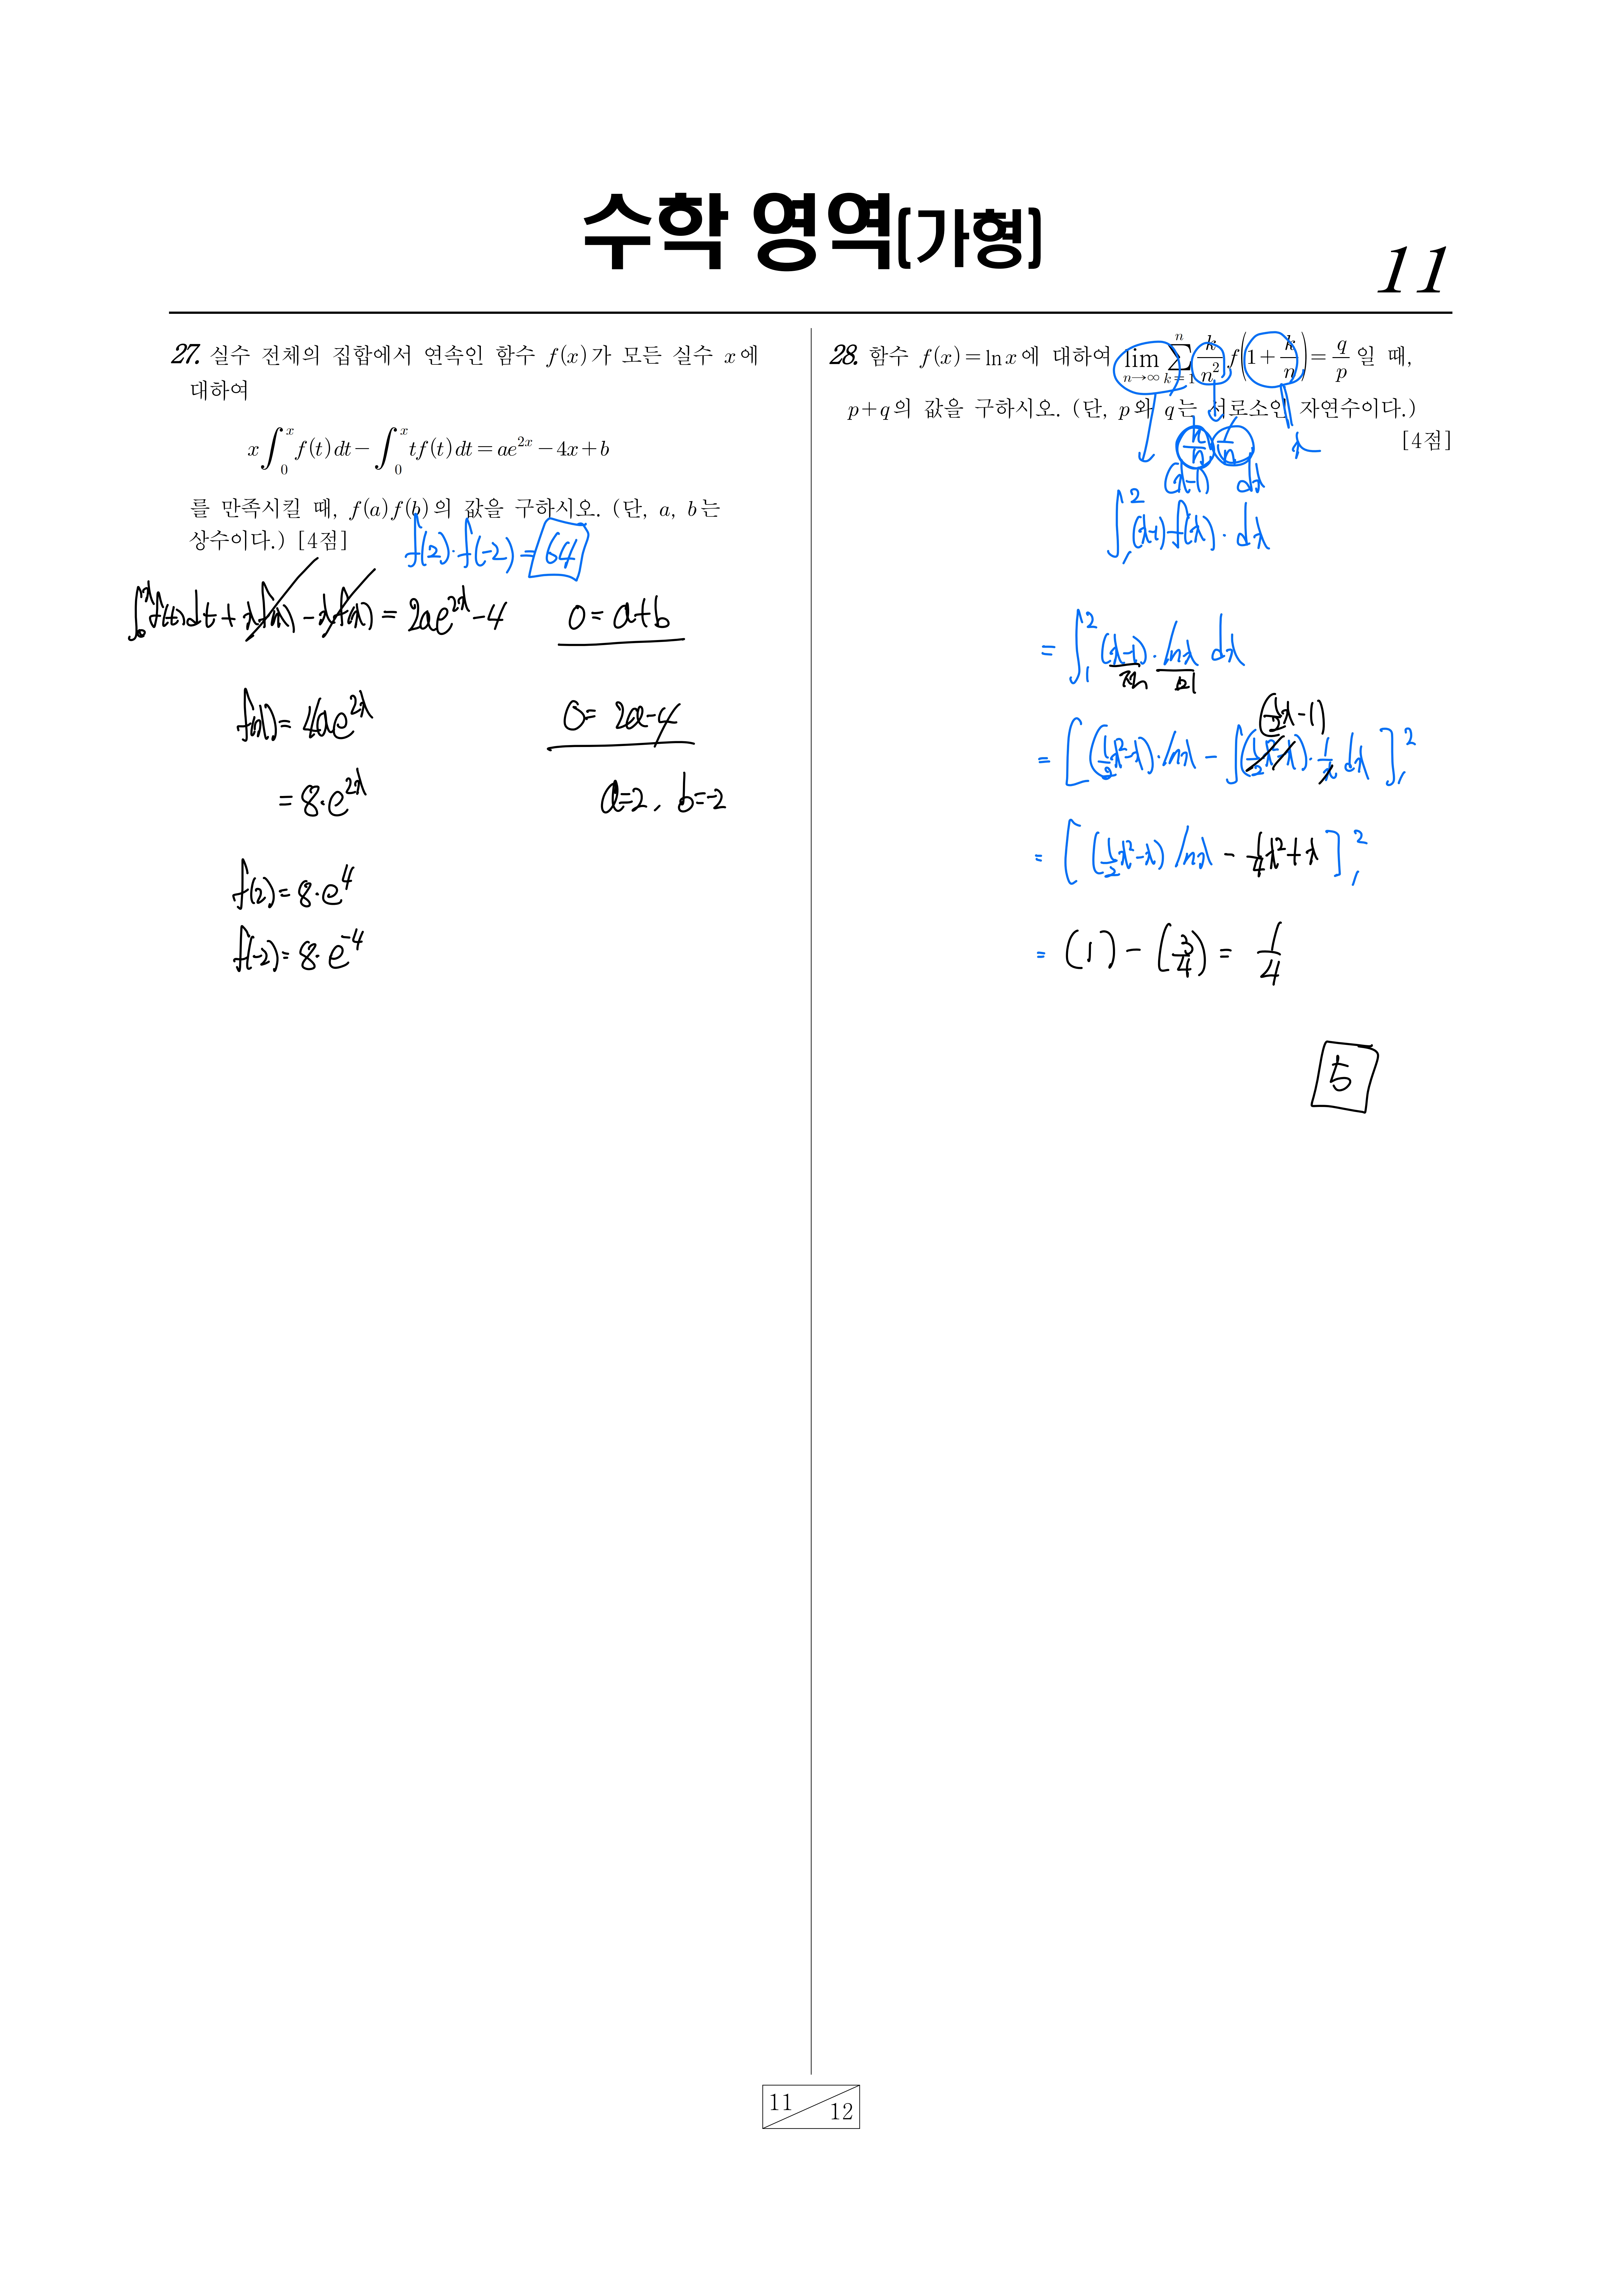 수학 영역(가형)
11
27. 실수 전체의 집합에서 연속인 함수 f(x)가 모든 실수 x에
대하여
x∫₀ˣ f(t)dt − ∫₀ˣ tf(t)dt = ae²ˣ − 4x + b
를 만족시킬 때, f(a)f(b)의 값을 구하시오. (단, a, b는
상수이다.) [4점]
f(2)·f(-2) = 64
∫₀ˣ f(t)dt + xf(x) − xf(x) = 2ae²ˣ − 4
0 = a+b
f(x) = 4ae²ˣ
0 = 2a−4
= 8·e²ˣ
a=2, b=-2
f(2) = 8·e⁴
f(-2) = 8·e⁻⁴
28. 함수 f(x) = ln x에 대하여 lim n→∞ ∑ k=1 n k/n² f(1 + k/n) = q/p 일 때,
p+q의 값을 구하시오. (단, p와 q는 서로소인 자연수이다.)
[4점]
k/n 1/n x
(x-1) dx
∫₁² (x-1) f(x)·dx
= ∫₁² (x-1)·ln x dx
(½x − 1)
= [(½x²−x)·ln x − ∫(½x²−x)·1/x dx]₁²
= [(½x²−x) ln x − ¼x² + x]₁²
= (1) − (3/4) = 1/4
5
11
12